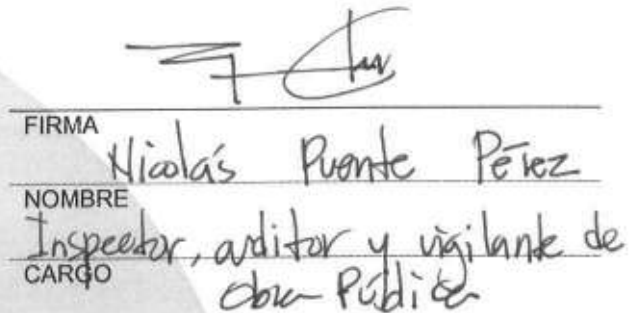 FIRMA
Nicolás Puente Pérez
NOMBRE
Inspector, auditor y vigilante de
CARGO
obra Pública